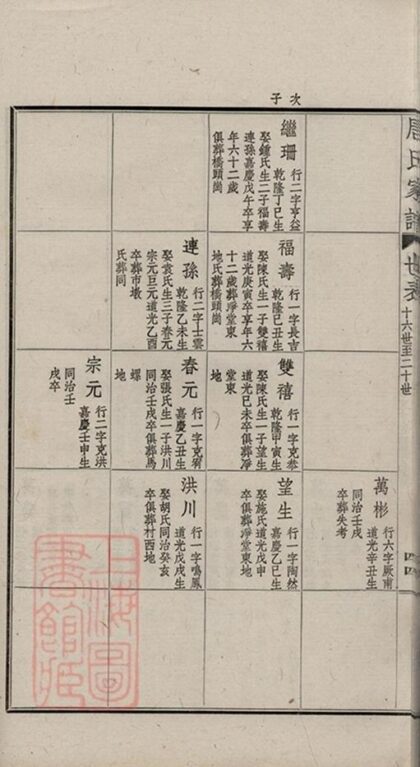 次子
唐氏家譜
世表
十六世至二十世
四四
繼珊
行二字亨益
乾隆丁巳生
娶鍾氏生二子福壽
連孫嘉慶戊午卒享
年六十二歲
俱葬橋頭崗
福壽
行一字長吉
乾隆己丑生
娶陳氏生一子雙禧
道光庚寅卒享年六
十二歲葬淨堂東
地氏葬橋頭崗
連孫
行二字士雲
乾隆乙未生
娶袁氏生三子春元
宗元旦元道光乙酉
卒葬市墩
氏葬同
雙禧
行一字克恭
乾隆甲寅生
娶陳氏生一子望生
道光己未卒俱葬淨
堂東
地
春元
行一字克宥
嘉慶乙丑生
娶張氏生一子洪川
同治壬戌卒俱葬馬
螺
地
宗元
行二字克洪
嘉慶壬申生
同治壬
戌卒
萬彬
行六字厥甫
道光辛丑生
同治壬戌
卒葬失考
望生
行一字陶然
嘉慶乙巳生
娶施氏道光戊申
卒俱葬淨堂東地
洪川
行一字鳴鳳
道光戊戌生
娶胡氏同治癸亥
卒俱葬村西地
上海圖
書館藏